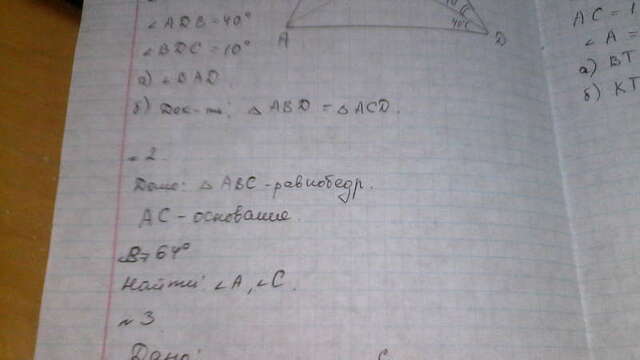 ∠ADB = 40°
∠BDC = 10°
а) ∠BAD.
б) Док-ть: △ABD = △ACD.
A
40°
D
№ 2.
Дано: △ABC - равнобедр.
AC - основание.
∠B = 64°
Найти: ∠A, ∠C.
№ 3
Дано:
C
AC = 1
∠A =
а) BT
б) KT